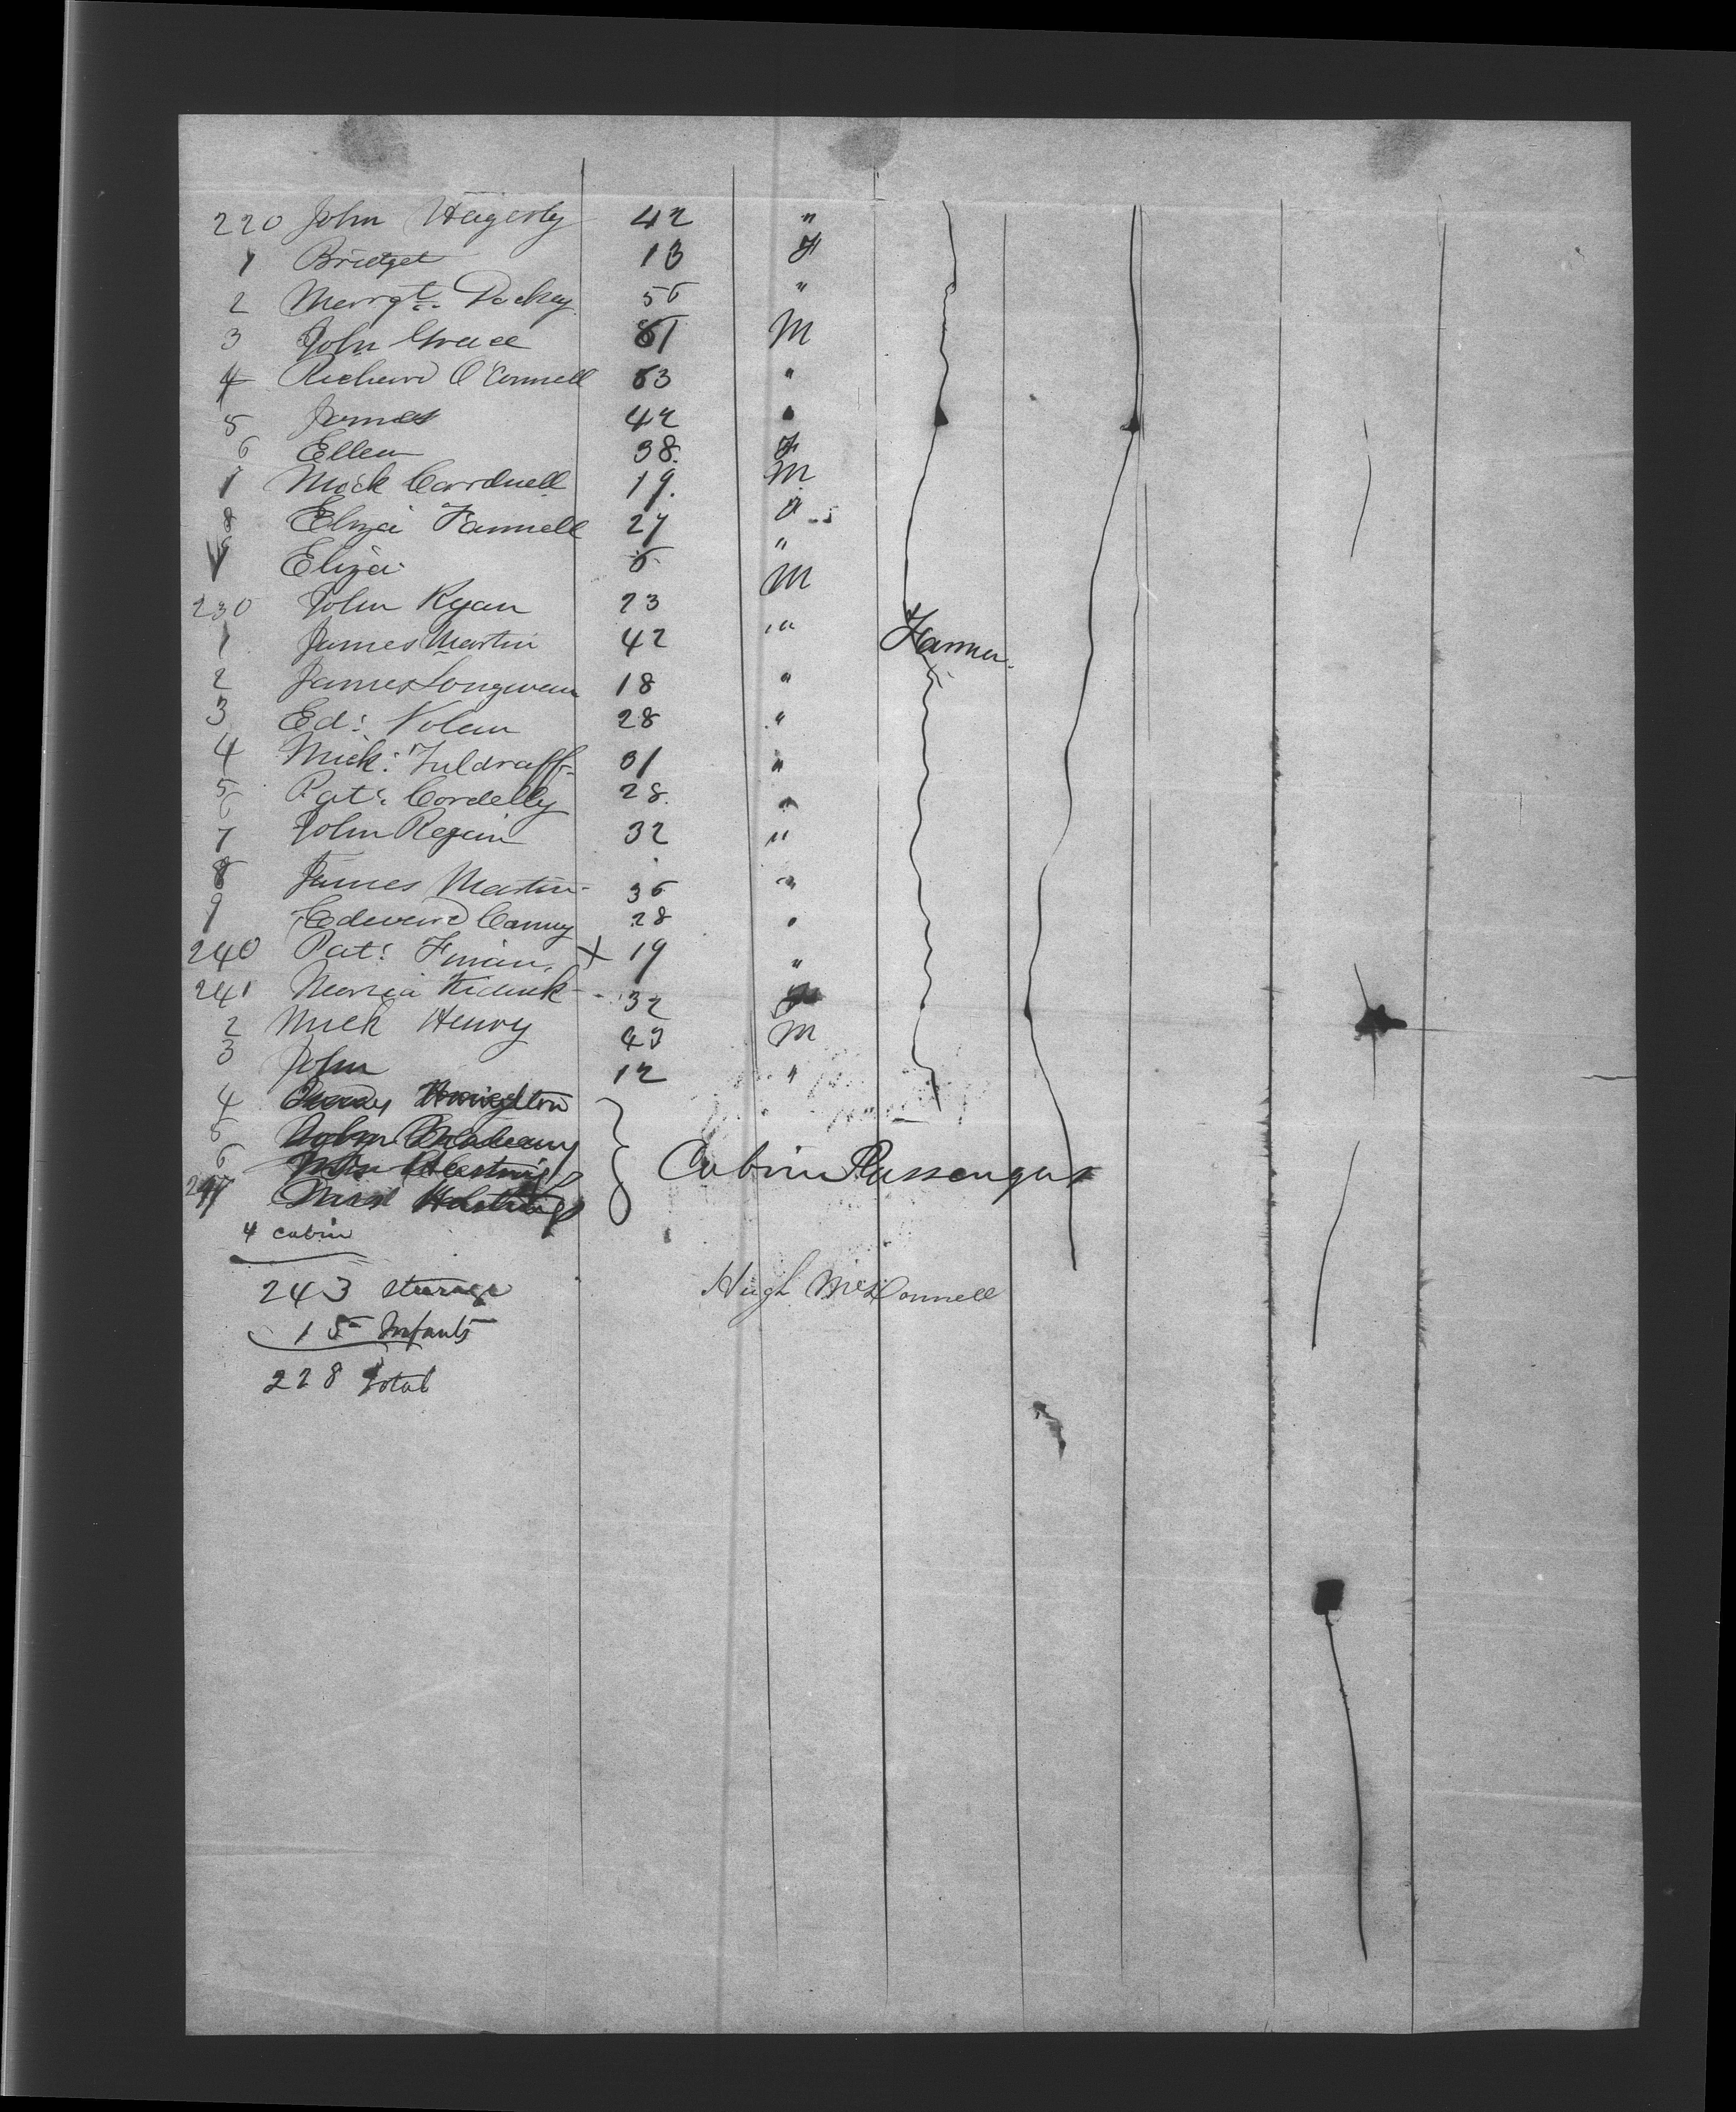 220 John Hagerty 42 "
1 Bridget 13 F
2 Margt. 55 "
3 John Grace 81 M
4 Richard O'Connell 53 "
5 James 42 "
6 Ellen 38. F
7 Mick Cardnell 19. M
8 Eliza Fannell 27
9 Eliza 5 "
230 John Ryan 23 M
1 James Martin 42 " Farmer.
2 James 18 "
3 Ed: Nolan 28 "
4 Mick: 31 "
5 Pat: Cordelly 28. "
6
7 John Regain 32 "
8 James Martin 35 "
9 Edward Canny 28 "
240 Pat: X 19 "
241 Maria 32
2 Mick Henry 43 M
3 John 12 "
4
5 John
6 Hastings Cabin Passengers
247 Hastings
4 cabin
243 Steerage Hugh McDonnell
15 Infants
228 Total